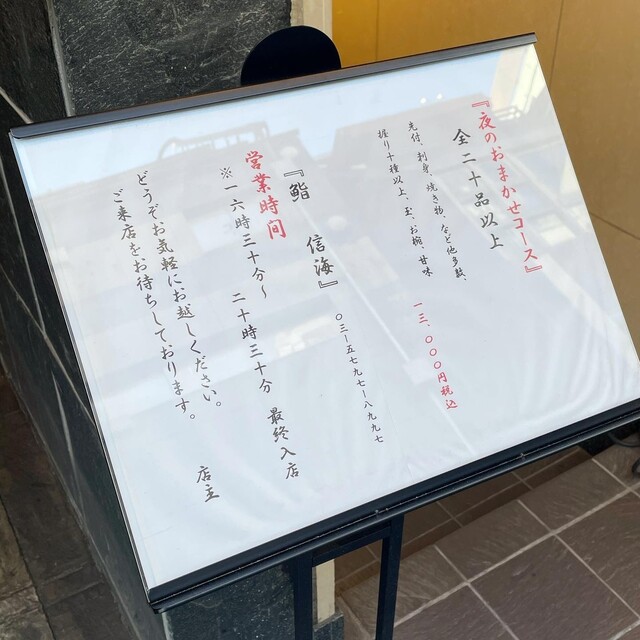 『夜のおまかせコース』
全二十品以上
先付、刺身、焼き物、など他多数、
握り十種以上、玉、お椀、甘味
一三、〇〇〇円税込
『鮨 信海』
〇三-五七九七-八九九七
営業時间
※一六時三十分~ 二十時三十分 最終入店
どうぞお気軽にお越しください。
ご来店をお待ちしております。
店主